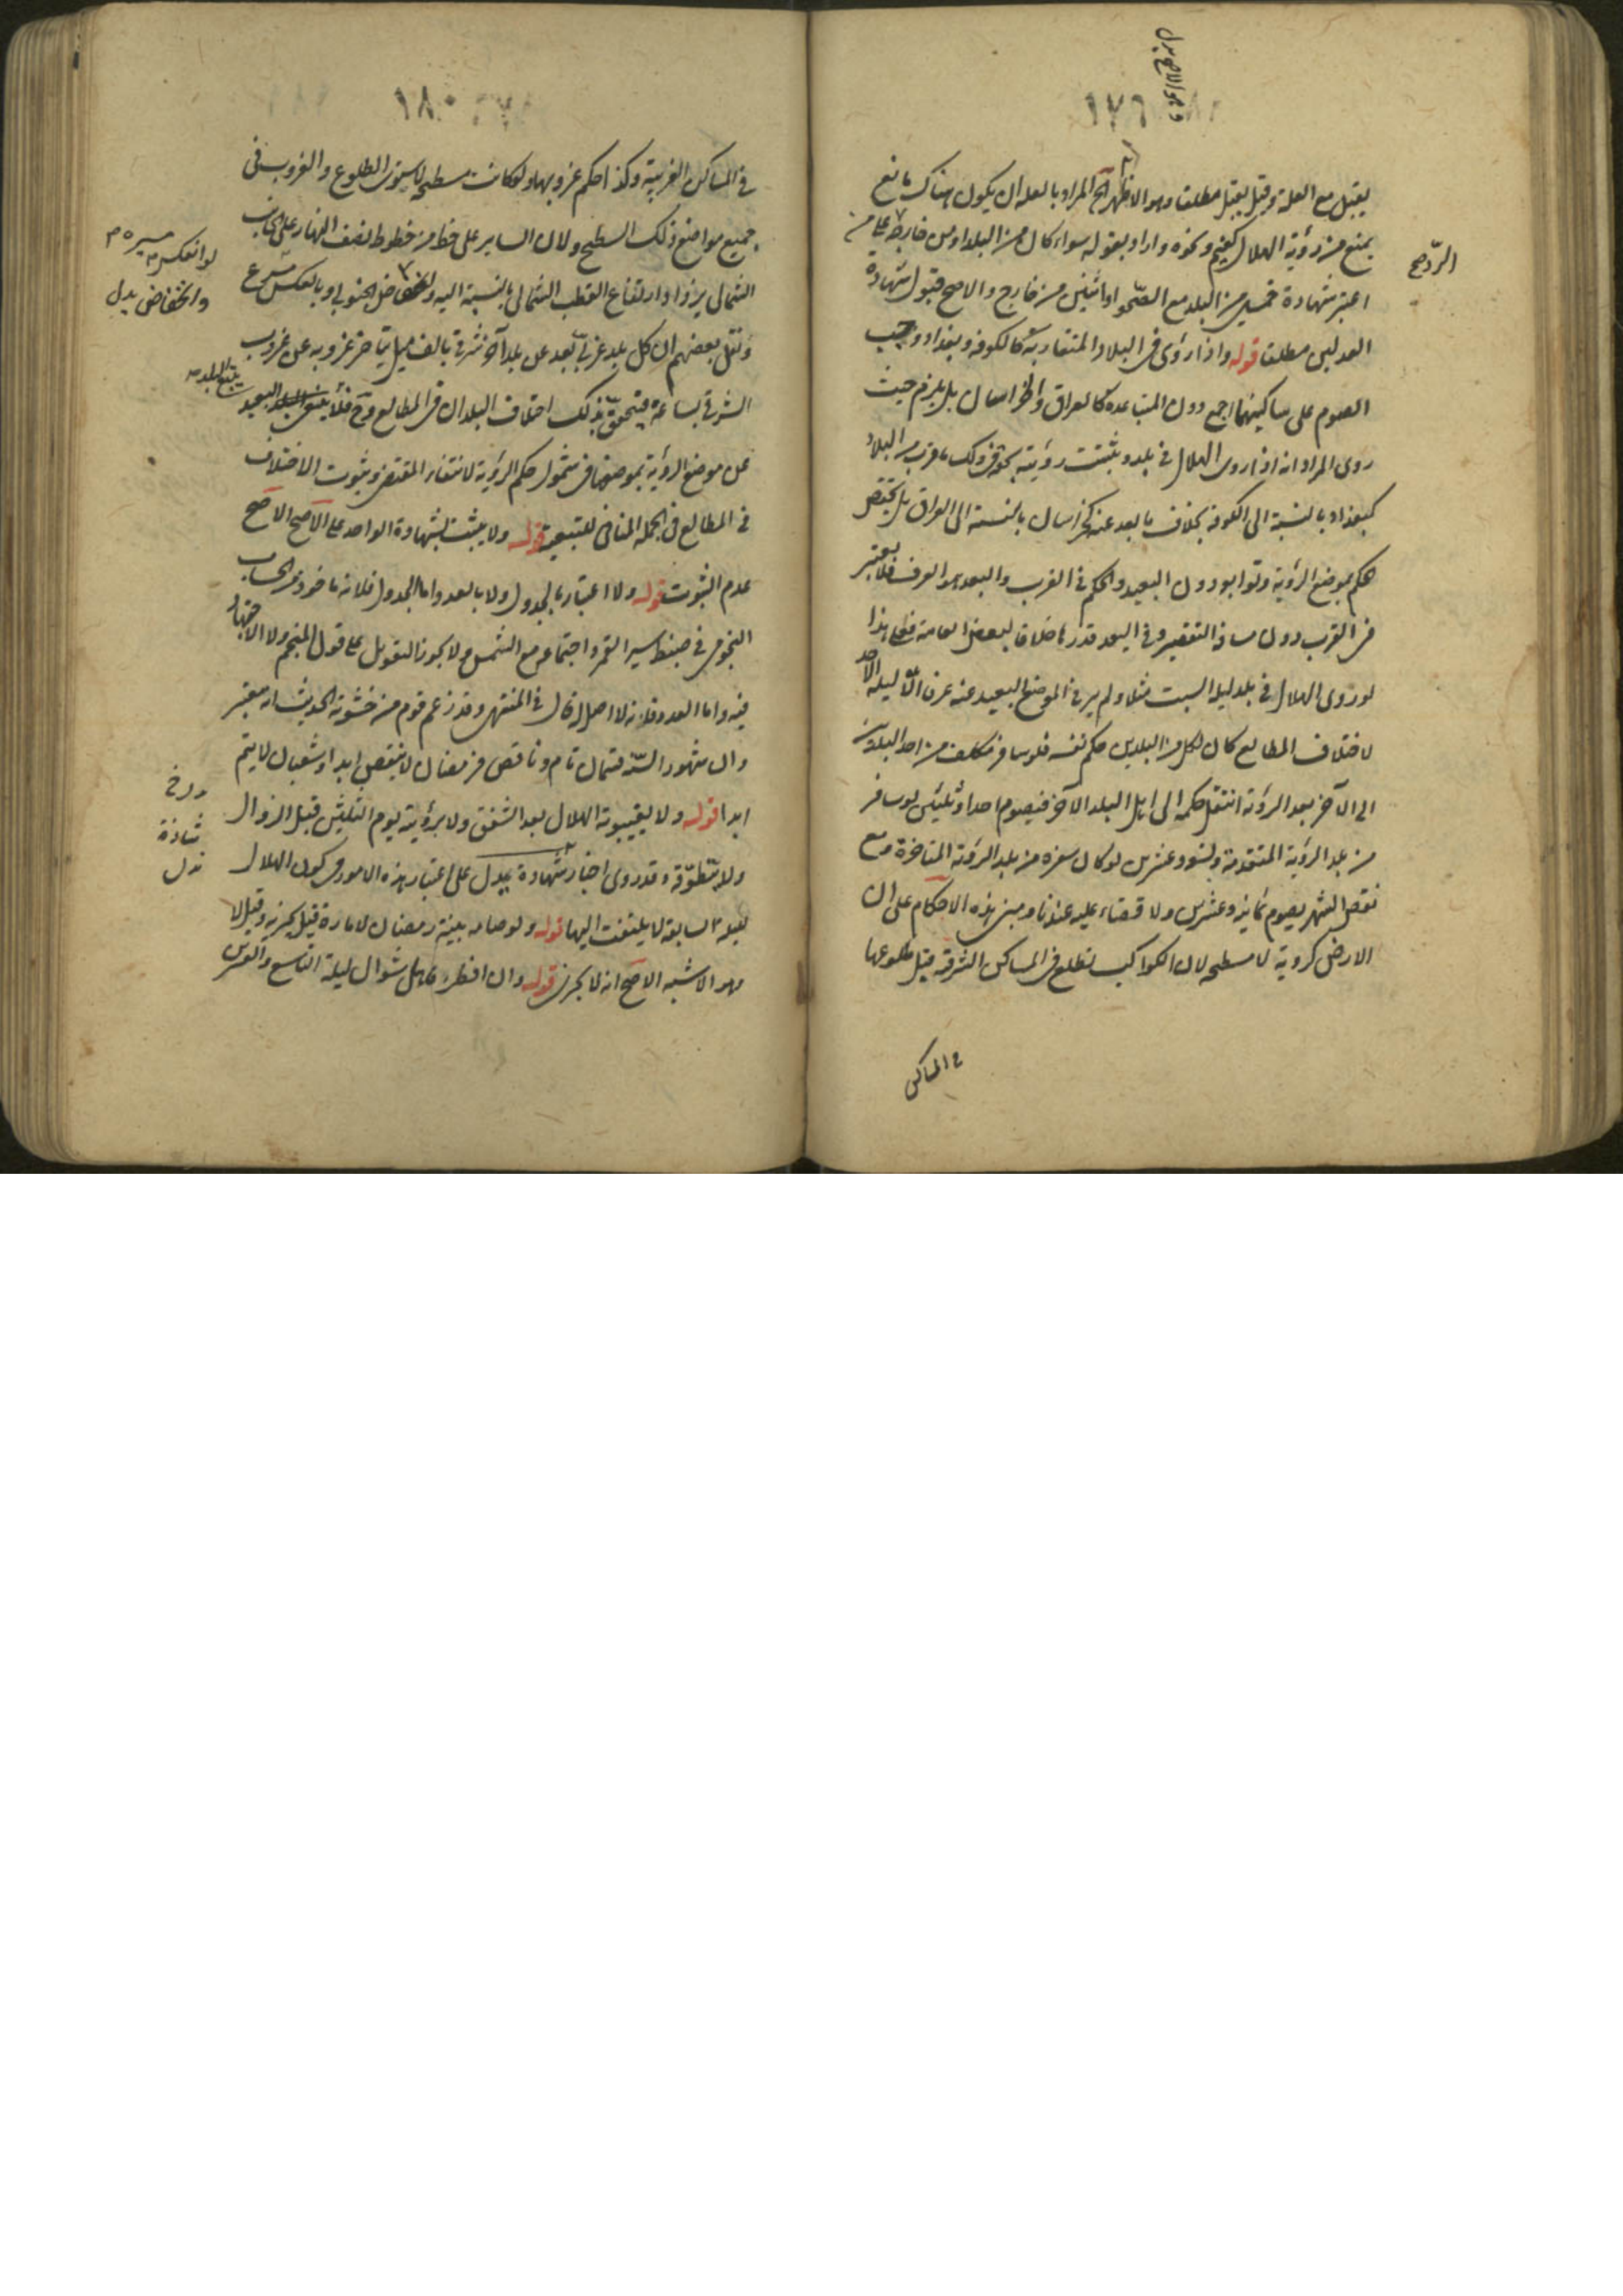 ١٧٦
يقبل مع العلة وقيل يقبل مطلقا وهو الاظهر الخ المراد بالعلة ان يكون هناك مانع
يمنع من رؤية الهلال كغيم ونحوه واراد بقوله سواء كان من البلد او من خارجه
اعتبر شهادة خمسين من البلد مع الصحو او اثنين من خارج والاصح قبول شهادة
العدلين مطلقا قوله واذا رؤى فى البلاد المتقاربة كالكوفه وبغداد وجب
الصوم على ساكنيهما اجمع دون المتباعده كالعراق والخراسان بل يلزم حيث
روى المراد انه اذا روى الهلال فى بلد وثبتت رؤيته بحوفى ذلك ما قرب من البلاد
كبغداد بالنسبة الى الكوفة بخلاف ما بعد عنه كخراسان بالنسبة الى العراق بل يختص
حكم بموضع الرؤية وتوابعه دون البعيد والحكم فى القرب والبعد هو العرف فلا يعتبر
فى القرب دون مسافة التقصير وفى البعد قدرها خلافا لبعض العامة فعلى هذا
لو روى الهلال فى بلد ليلة السبت مثلا ولم ير فى الموضع البعيد عنه عرفا الا ليلة الاحد
لاختلاف المطالع كان لكل من البلدين حكم نفسه فلو سافر مكلف من احد البلدين
الى الآخر بعد الرؤية انتقل حكمه الى اهل البلد الآخر فيصوم احدا وثلثين لو سافر
من بلد الرؤية المتقدمة وتسعة وعشرين لو كان سفره من بلد الرؤية المتاخرة ومع
نقص الشهر يصوم ثمانية وعشرين ولا قضاء عليه عندنا ومبنى هذه الاحكام على ان
الارض كروية لا مسطحة لان الكواكب تطلع فى المساكن الشرقية قبل طلوعها
فى المساكن
١٨٠
فى المساكن الغربية وكذا حكم غروبها ولو كانت مسطحة لاستوى الطلوع والغروب فى
جميع مواضع ذلك السطح ولان الساير على خط من خطوط نصف النهار على الجانب
الشمالى يزداد ارتفاع القطب الشمالى بالنسبة اليه وانخفاض الجنوبى وبالعكس
ونقل بعضهم ان كل بلد غربى بعد عن بلد آخر شرقى بالف ميل يتاخر غروبه عن غروب
الشرقى بساعة فيتحقق بذلك اختلاف البلدان فى المطالع وح فلا يتبع البلد البعيد
عن موضع الرؤية بموضعها فى شمول حكم الرؤية لانتفاء المقتضى وثبوت الاختلاف
فى المطالع فى الجملة المنافى للتبعية قوله ولا يثبت بشهادة الواحد على الاصح الاصح
عدم الثبوت قوله ولا اعتبار بالجدول ولا بالعدد اما الجدول فلانه ماخوذ من الحساب
النجومى فى ضبط سير القمر واجتماعه مع الشمس ولا يجوز التعويل على قول المنجم ولا الاجتهاد
فيه واما العدد فلانه لا اصل له قال فى المنتهى وقد زعم قوم من حشوية الحديث انه معتبر
وان شهور السنة قسمان تام وناقص فرمضان لا ينقص ابدا وشعبان لا يتم
ابدا قوله ولا بغيبوبة الهلال بعد الشفق ولا برؤيته يوم الثلثين قبل الزوال
ولا بتطوقه وقد روى اخبار شاذة يدل على اعتبار هذه الامور فى كون الهلال
لليلة السابقة لا يلتفت اليها قوله ولو صامه بنية رمضان لامارة قيل يجزيه وقيل لا
وهو الاشبه الاصح انه لا يجزى قوله وان افطر فاهل شوال ليلة التاسع والعشرين